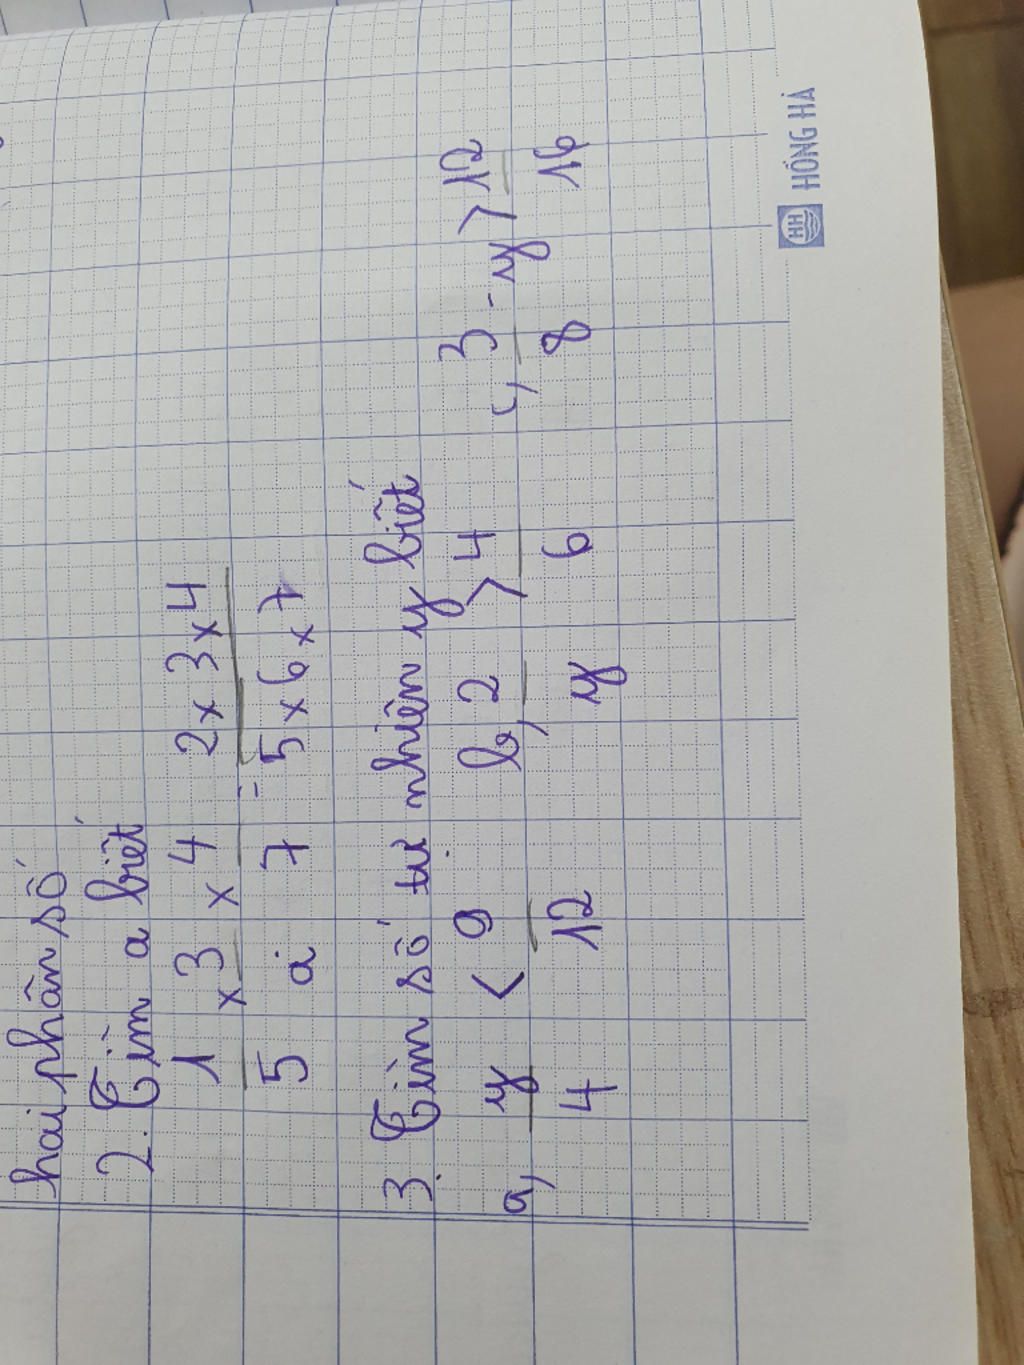 hai phân số
2. Tìm a biết
1/5 x 3/a x 4/7 = 2 x 3 x 4 / 5 x 6 x 7
3. Tìm số tự nhiên y biết
a, y/4 < 9/12 b, 2/y > 4/6 c, 3/8 - y > 12/16
HH HỒNG HÀ